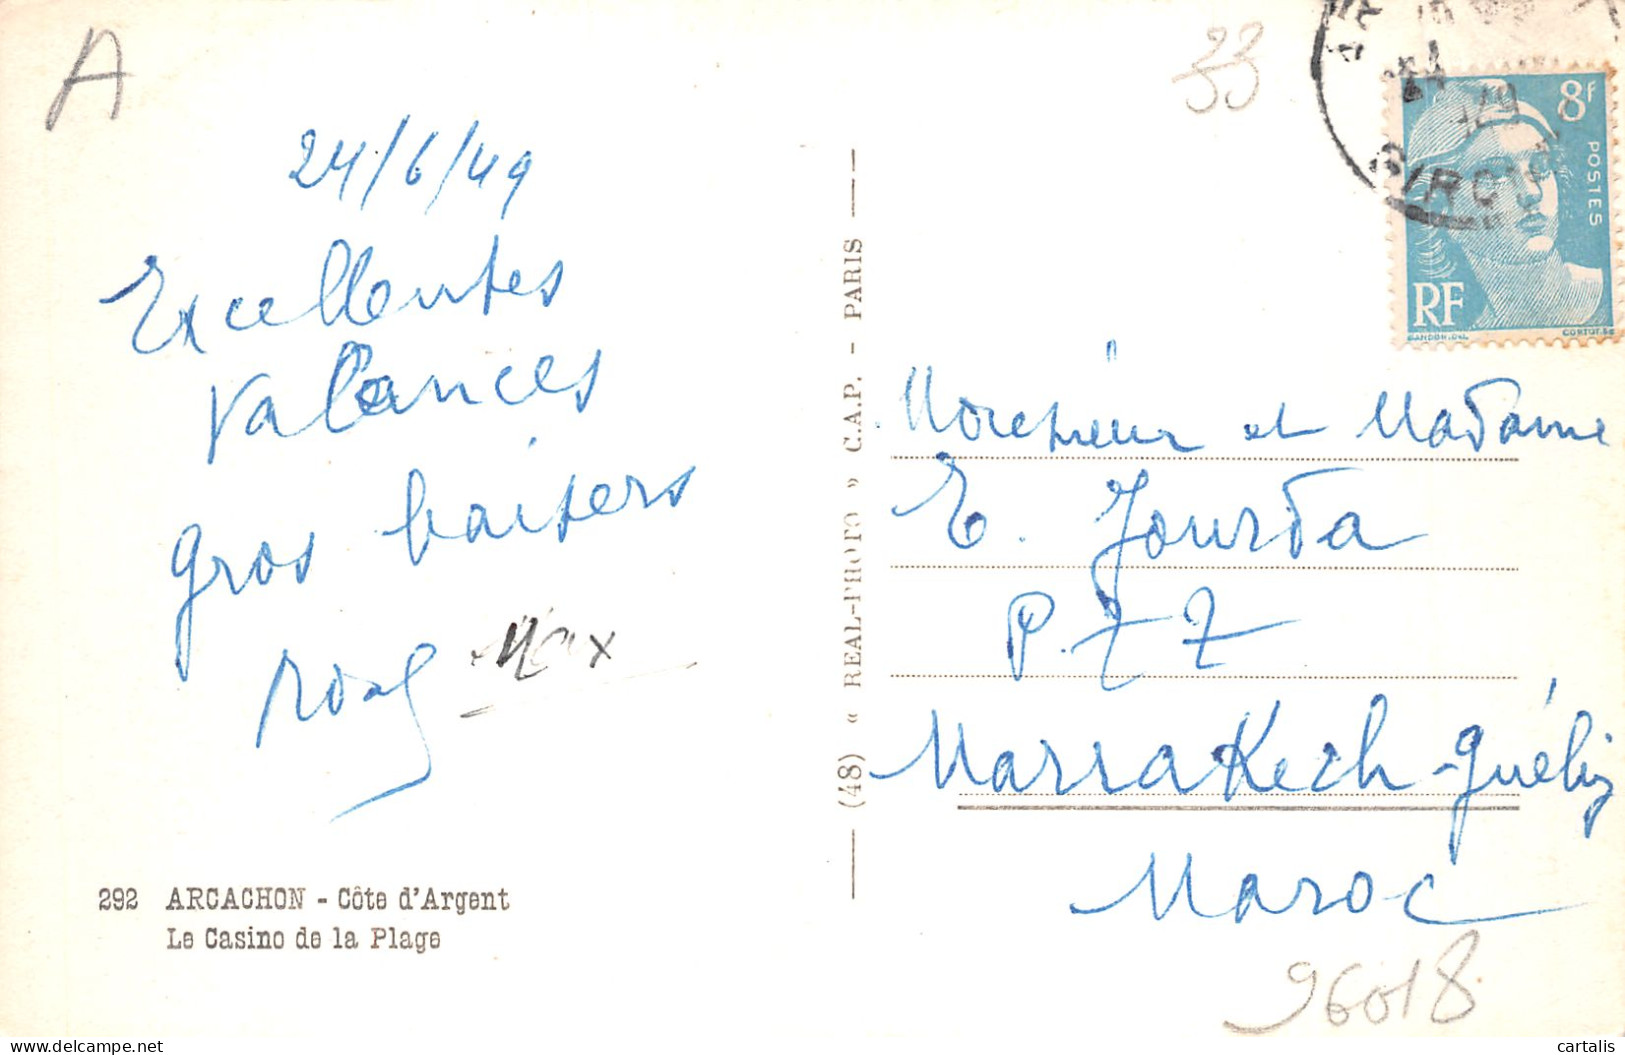 A
33
24/6/49
Excellentes
vacances
gros baisers
Max
292 ARCACHON - Côte d'Argent
Le Casino de la Plage
(48) « REAL-PHOTO » C.A.P. - PARIS
8f
POSTES
RF
GANDON.DEL
CORTOT.SC
GIRONDE
Monsieur et Madame
E. Jourda
P.TT
Marrakech-Guéliz
Maroc
96018
cartalis